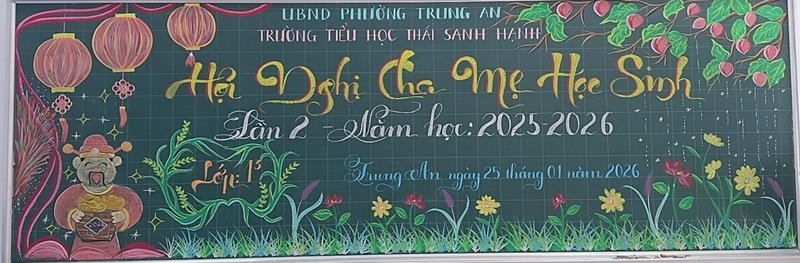 UBND PHƯỜNG TRUNG AN
TRƯỜNG TIỂU HỌC THÁI SANH HẠNH
Hội Nghị Cha Mẹ Học Sinh
Lần 2 - Năm học: 2025-2026
Lớp: 1³
Trung An, ngày 25 tháng 01 năm 2026